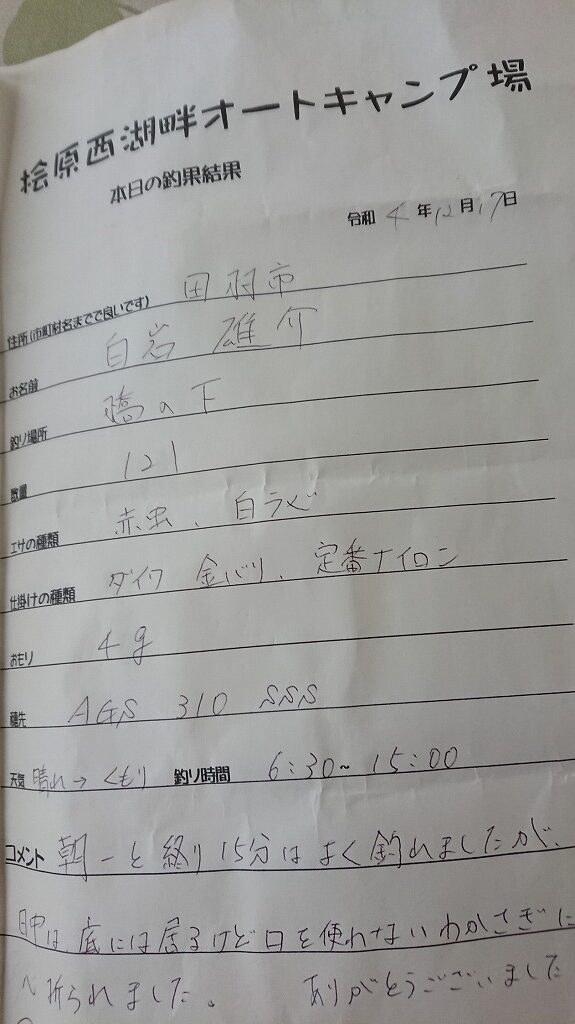 桧原西湖畔オートキャンプ場
本日の釣果結果
令和 4 年 12 月 17 日
住所(市町村名までで良いです) 田羽市
お名前 白岩 雄介
釣り場所 橋の下
数量 121
エサの種類 赤虫、白ラビ
仕掛けの種類 ダイワ 金バリ、定番ナイロン
おもり 4g
穂先 AGS 310 SSS
天気 晴れ→くもり 釣り時間 6:30~15:00
コメント 朝一と終り15分はよく釣れましたが、
日中は底には居るけど口を使れないわかさぎに
へ折られました。 ありがとうございました